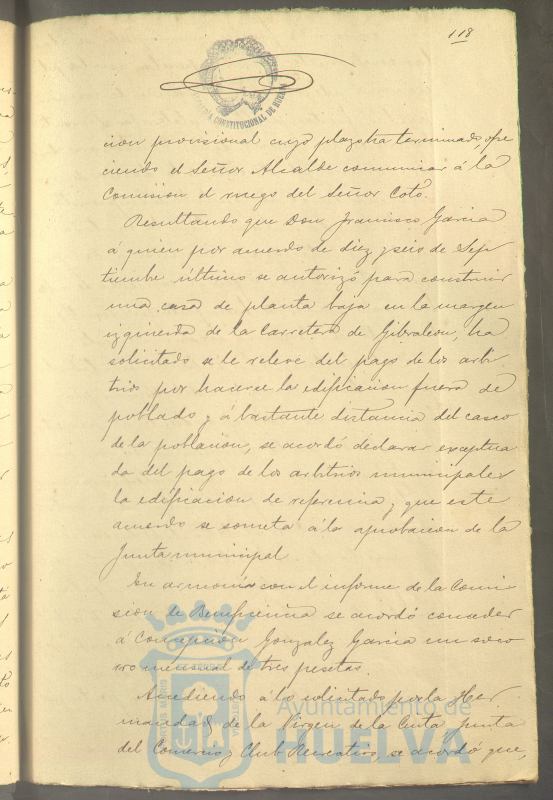 118
ALCALDIA CONSTITUCIONAL DE HUELVA
cion provisional cuyo plazo ha terminado, ofre
ciendo el Señor Alcalde comunicar á la
Comision el ruego del Señor Coto.
Resultando que Don Francisco Garcia
á quien por acuerdo de diez y seis de Sep
tiembre último se autorizó para construir
una casa de planta baja en la margen
izquierda de la Carretera de Gibraleon, ha
solicitado se le releve del pago de los arbi
trios por hacerse la edificacion fuera de
poblado y á bastante distancia del casco
de la poblacion, se acordó declarar exceptua
da del pago de los arbitrios municipales
la edificacion de referencia y que este
acuerdo se someta á la aprobacion de la
Junta municipal
En armonia con el informe de la Comi
sion de Beneficencia se acordó conceder
á Concepcion Gonzalez Garcia un soco
rro mensual de tres pesetas.
Accediendo á lo solicitado por la Her
mandad de la Virgen de la Cinta, junta
del Comercio y Club Recreativo, se acordó que,
Ayuntamiento de
HUELVA